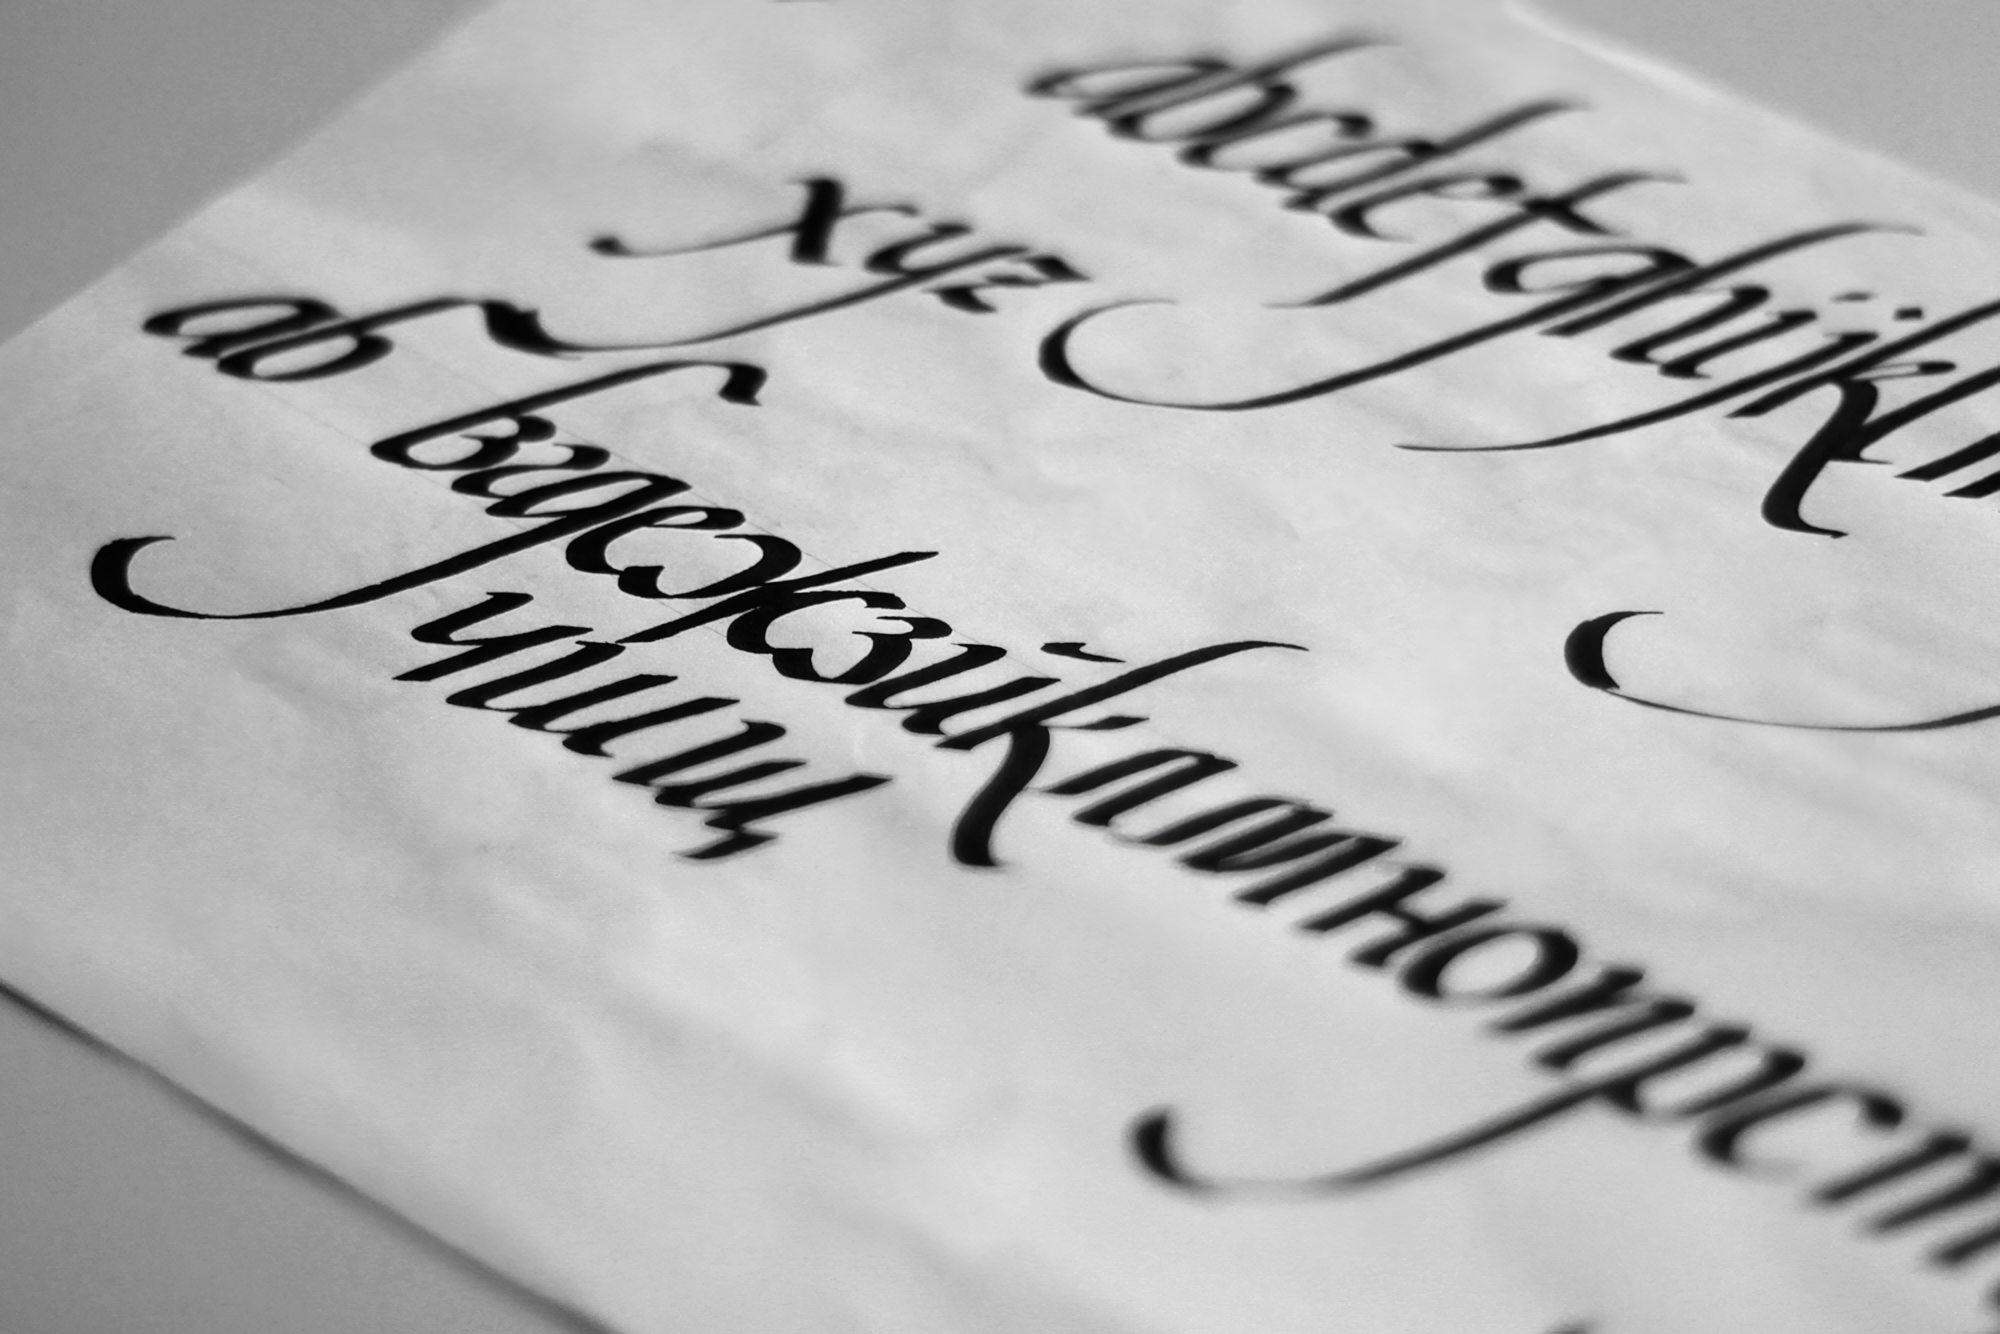 abcdefghijkl
xyz
абвгдежзийклмнопрст
чшщ